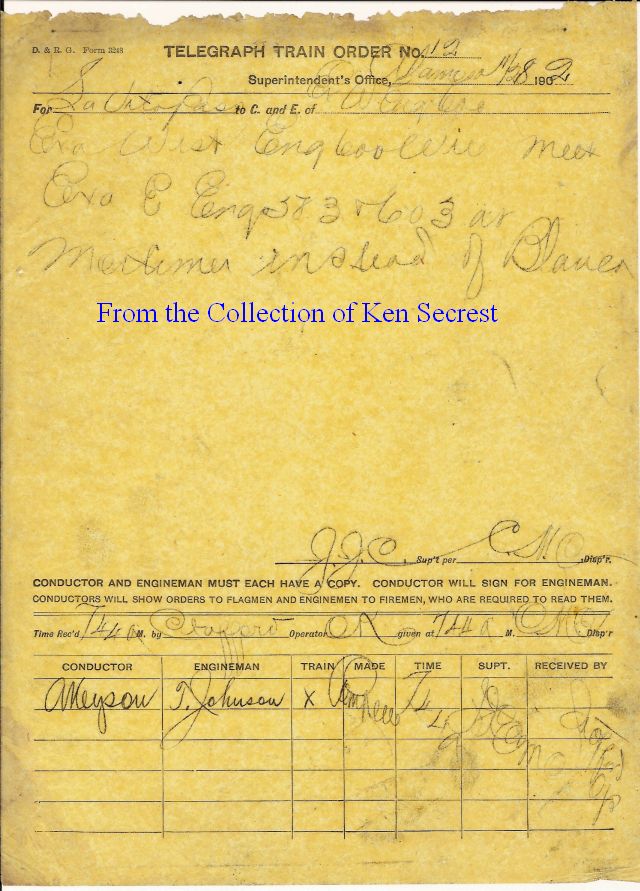 D. & R. G. Form 3248
TELEGRAPH TRAIN ORDER No. 12
Superintendent's Office, Alamosa 11/28 1902
For to C. and E. of
Exa West Eng 600 Will meet
Exa E Engs 583 & 603 at
Mortimer instead of Blanca
From the Collection of Ken Secrest
J.J.C. Sup't per C.M.C. Disp'r.
CONDUCTOR AND ENGINEMAN MUST EACH HAVE A COPY. CONDUCTOR WILL SIGN FOR ENGINEMAN.
CONDUCTORS WILL SHOW ORDERS TO FLAGMEN AND ENGINEMEN TO FIREMEN, WHO ARE REQUIRED TO READ THEM.
Time Rec'd 744 a M. by Operator OK given at 744 a M. Disp'r
CONDUCTOR ENGINEMAN TRAIN MADE TIME SUPT. RECEIVED BY
T. Johnson X